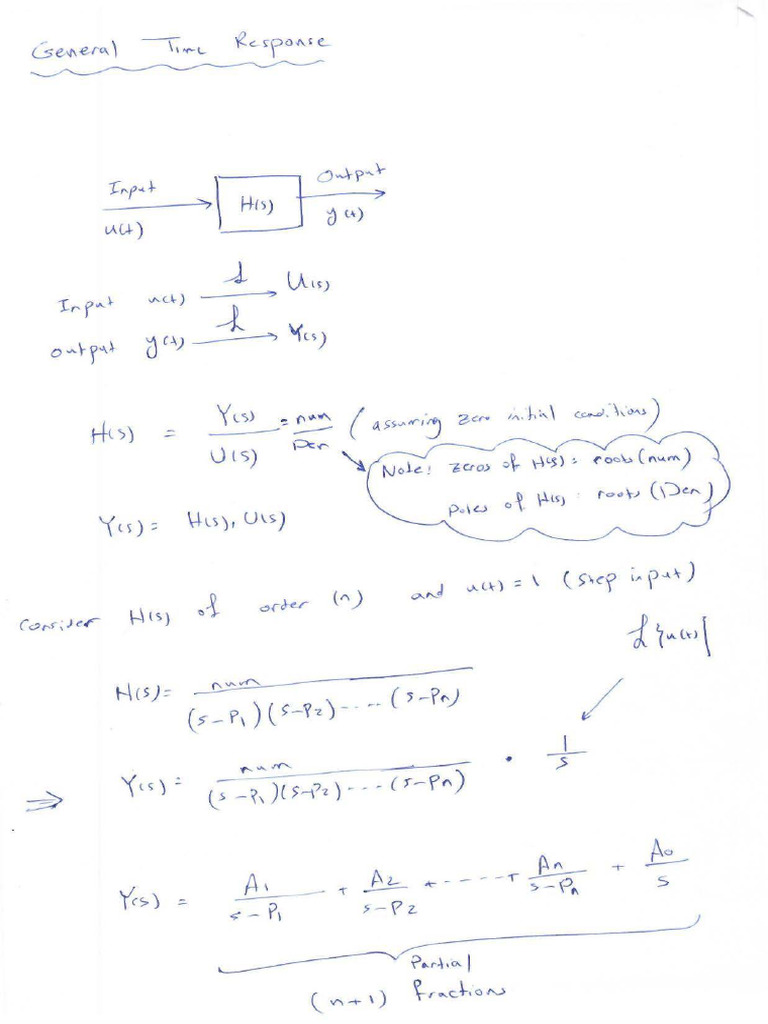 General Time Response
Input
u(t)
H(s)
Output
y(t)
Input u(t) ℒ U(s)
output y(t) ℒ Y(s)
H(s) = Y(s)/U(s) = num/Den (assuming zero initial conditions)
Note: zeros of H(s) = roots(num)
Poles of H(s) : roots (Den)
Y(s) = H(s), U(s)
Consider H(s) of order (n) and u(t) = 1 (step input)
ℒ{u(t)}
H(s) = num/((s-P1)(s-P2)-....(s-Pn))
⇒ Y(s) = num/((s-P1)(s-P2)-...(s-Pn)) . 1/s
Y(s) = A1/(s-P1) + A2/(s-P2) + -----+ An/(s-Pn) + A0/s
Partial
(n+1) fractions